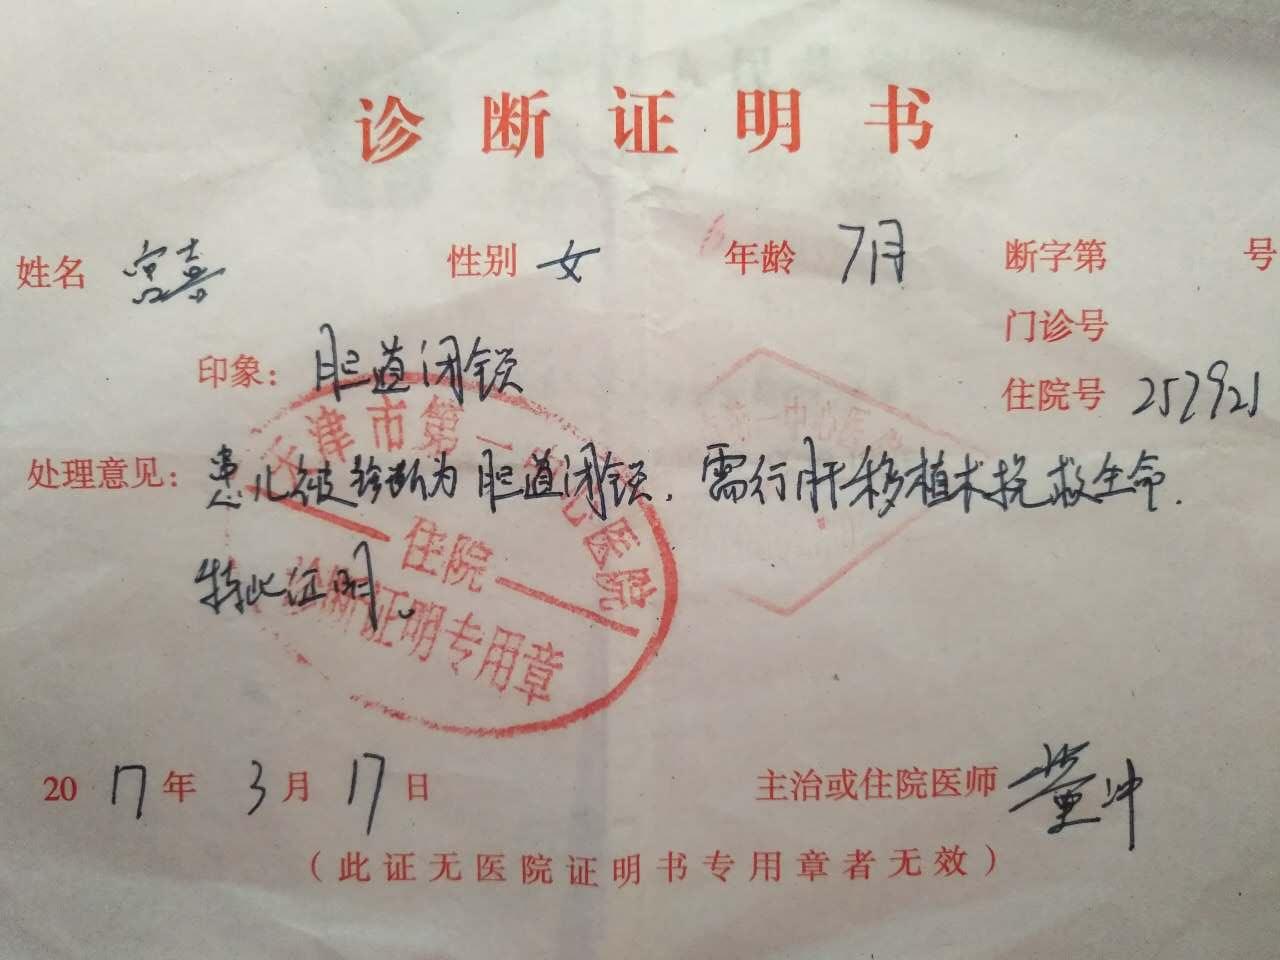 诊断证明书
姓名 宫喜 性别 女 年龄 7月 断字第 号
门诊号
印象：胆道闭锁
住院号 257921
处理意见：患儿被诊断为胆道闭锁，需行肝移植术挽救生命.
特此证明。
天津市第一中心医院
住院
诊断证明专用章
2017年3月17日 主治或住院医师 董冲
（此证无医院证明书专用章者无效）